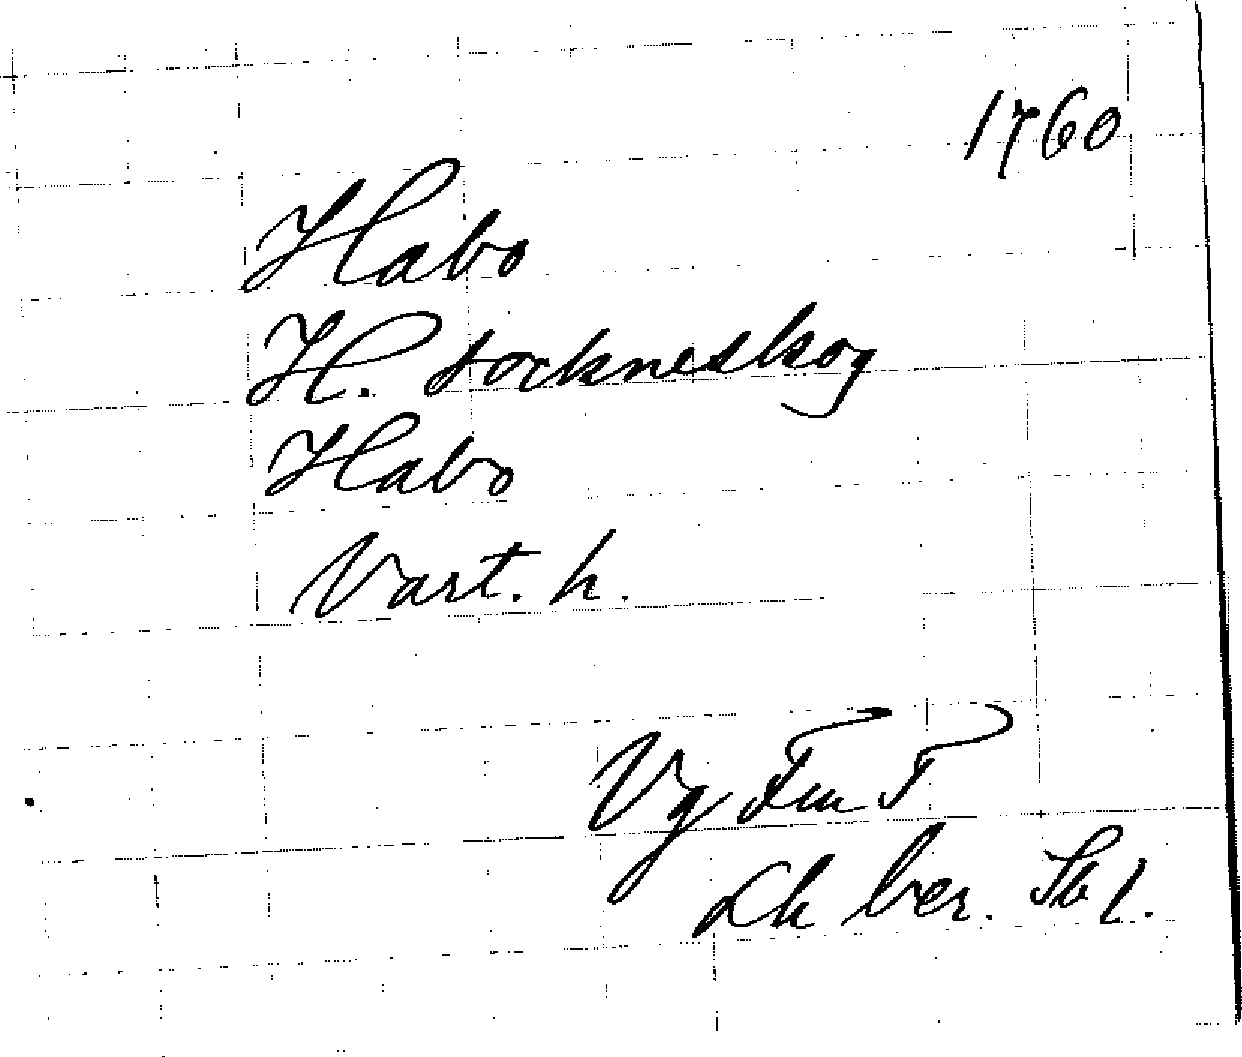 1760
Habo
H. sockneskog
Habo
Vart. h.
Vg Fm T
Lh ber. Sb 1.